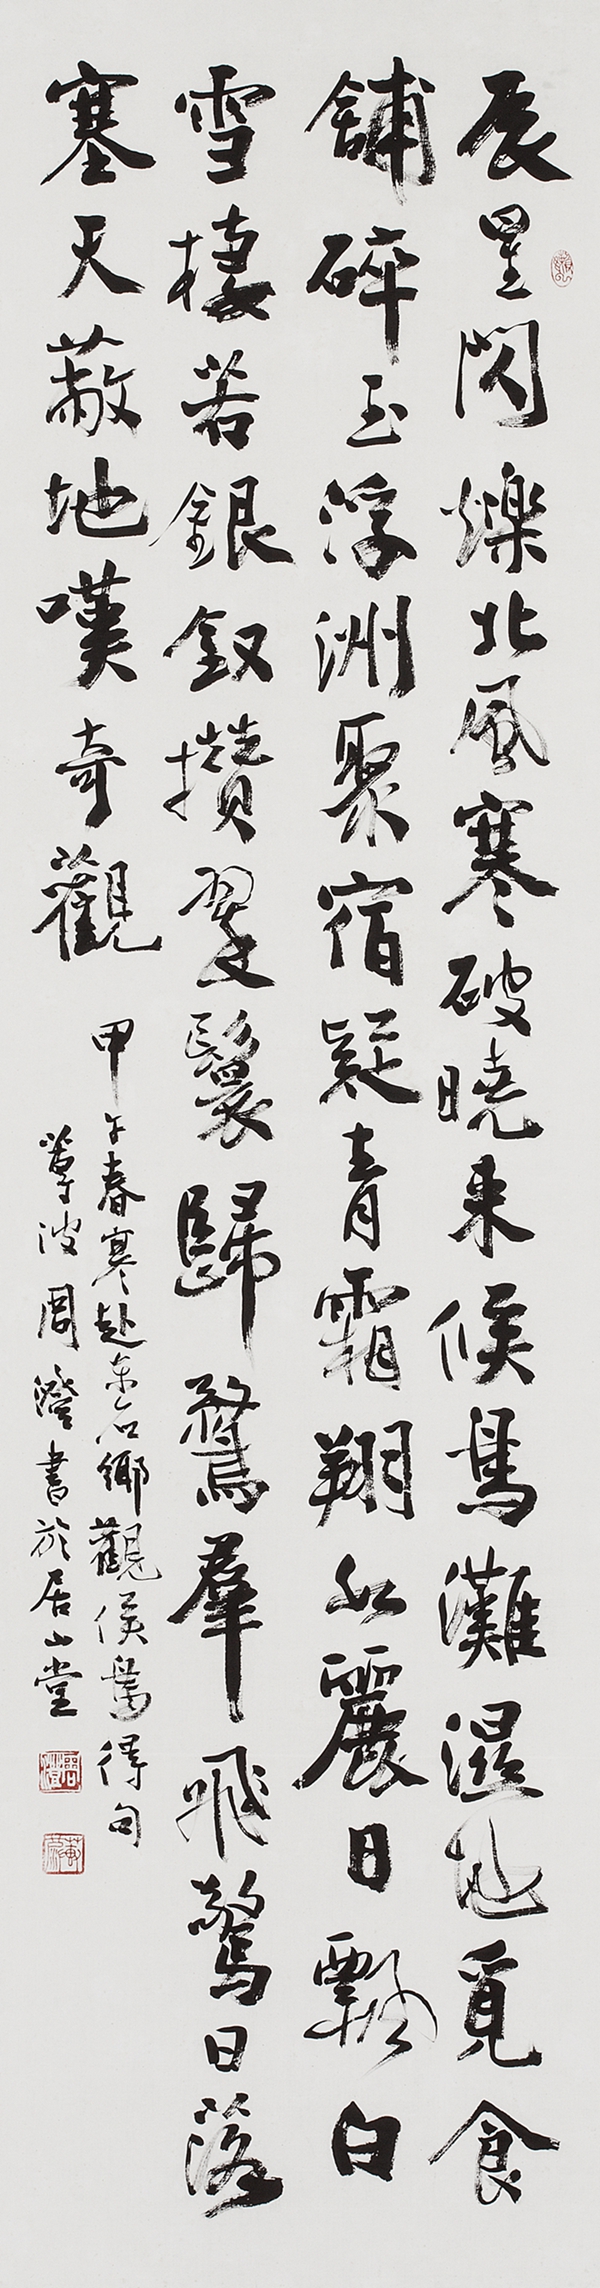 辰星閃爍北風寒破曉来候鳥灘濕地覓食
舖碎玉浮洲聚宿疑青霜翔如麗日飄白
雪棲若銀釵攢翠鬟歸鶩羣飛驚日落
塞天蔽地嘆奇觀
甲午春寒赴东石鄉觀候鳥得句
蓴波周澄書於居山堂